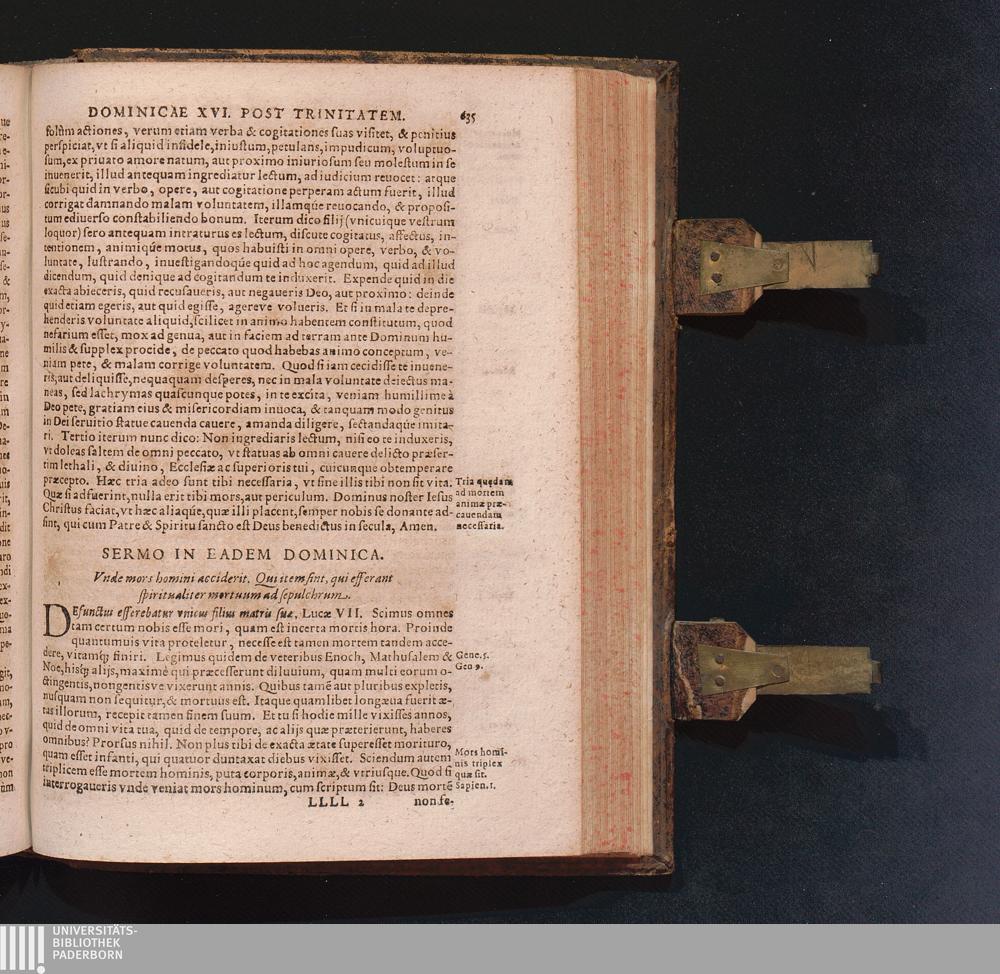 DOMINICAE XVI. POST TRINITATEM. 635
ſolùm actiones, verum etiam verba & cogitationes ſuas viſitet, & penitius
perſpiciat, vt ſi aliquid infidele, iniuſtum, petulans, impudicum, voluptuo-
ſum, ex priuato amore natum, aut proximo iniurioſum ſeu moleſtum in ſe
inuenerit, illud antequam ingrediatur lectum, ad iudicium reuocet: atque
ſicubi quid in verbo, opere, aut cogitatione perperam actum fuerit, illud
corrigat damnando malam voluntatem, illamq́ue reuocando, & propoſi-
tum ediuerſo conſtabiliendo bonum. Iterum dico filij (vnicuique veſtrum
loquor) ſero antequam intraturus es lectum, diſcute cogitatus, affectus, in-
tentionem, animiq́ue motus, quos habuiſti in omni opere, verbo, & vo-
luntate, luſtrando, inueſtigandoq́ue quid ad hoc agendum, quid ad illud
dicendum, quid denique ad cogitandum te induxerit. Expende quid in die
exacta abieceris, quid recuſaueris, aut negaueris Deo, aut proximo: deinde
quid etiam egeris, aut quid egiſſe, agereve volueris. Et ſi in mala te depre-
henderis voluntate aliquid, ſcilicet in animo habentem conſtitutum, quod
nefarium eſſet, mox ad genua, aut in faciem ad terram ante Dominum hu-
milis & ſupplex procide, de peccato quod habebas animo conceptum, ve-
niam pete, & malam corrige voluntatem. Quod ſi iam cecidiſſe te inuene-
ris, aut deliquiſſe, nequaquam deſperes, nec in mala voluntate deiectus ma-
neas, ſed lachrymas quaſcunque potes, in te excita, veniam humillime à
Deo pete, gratiam eius & miſericordiam inuoca, & tanquam modo genitus
in Dei ſeruitio ſtatue cauenda cauere, amanda diligere, ſectandaq́ue imita-
ri. Tertio iterum nunc dico: Non ingrediaris lectum, niſi eo te induxeris,
vt doleas ſaltem de omni peccato, vt ſtatuas ab omni cauere delicto præſer-
tim lethali, & diuino, Eccleſiæ ac ſuperioris tui, cuicunque obtemperare
præcepto. Hæc tria adeo ſunt tibi neceſſaria, vt ſine illis tibi non ſit vita.
Quæ ſi adfuerint, nulla erit tibi mors, aut periculum. Dominus noſter Ieſus
Chriſtus faciat, vt hæc aliaq́ue, quæ illi placent, ſemper nobis ſe donante ad-
ſint, qui cum Patre & Spiritu ſancto eſt Deus benedictus in ſecula, Amen.
Tria quædam
ad mortem
animæ præ-
cauendam
neceſſaria.
SERMO IN EADEM DOMINICA.
Vnde mors homini acciderit. Qui item ſint, qui efferant
ſpiritualiter mortuum ad ſepulchrum.
DEfunctus efferebatur vnicus filius matris ſuæ, Lucæ VII. Scimus omnes
tam certum nobis eſſe mori, quam eſt incerta mortis hora. Proinde
quantumuis vita proteletur, neceſſe eſt tamen mortem tandem acce-
dere, vitamq́; finiri. Legimus quidem de veteribus Enoch, Mathuſalem &
Noe, hisq́; alijs, maximè qui præceſſerunt diluuium, quam multi eorum o-
ctingentis, nongentisve vixerunt annis. Quibus tamē aut pluribus expletis,
nuſquam non ſequitur, & mortuus eſt. Itaque quamlibet longæua fuerit æ-
tas illorum, recepit tamen finem ſuum. Et tu ſi hodie mille vixiſſes annos,
quid de omni vita tua, quid de tempore, ac alijs quæ præterierunt, haberes
omnibus? Prorſus nihil. Non plus tibi de exacta ætate ſupereſſet morituro,
quam eſſet infanti, qui quatuor duntaxat diebus vixiſſet. Sciendum autem
triplicem eſſe mortem hominis, puta corporis, animæ, & vtriuſque. Quod ſi
interrogaueris vnde veniat mors hominum, cum ſcriptum ſit: Deus mortē
Gene. 5.
Gen 9.
Mors homi-
nis triplex
quæ ſit.
Sapien. 1.
LLLL 2 non fe-
UNIVERSITÄTS-
BIBLIOTHEK
PADERBORN